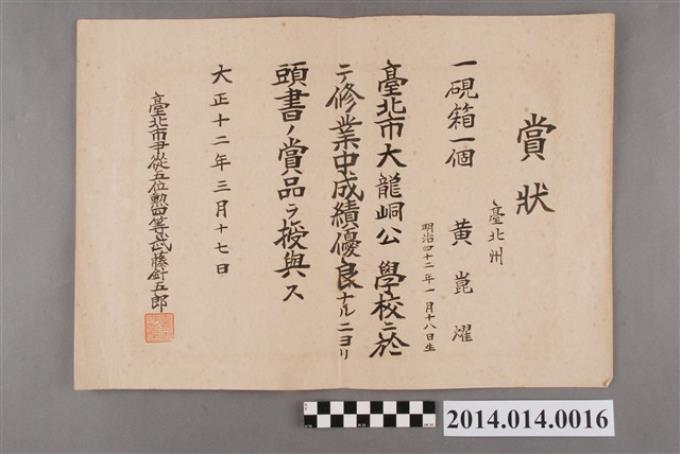 賞狀
一硯箱一個
臺北州
黄崑燿
明治四十二年一月十八日生
臺北市大龍峒公學校ニ於
テ修業中成績優良ナルニヨリ
頭書ノ賞品ヲ授與ス
大正十二年三月十七日
臺北市尹從五位勲四等武藤針五郎
2014.014.0016